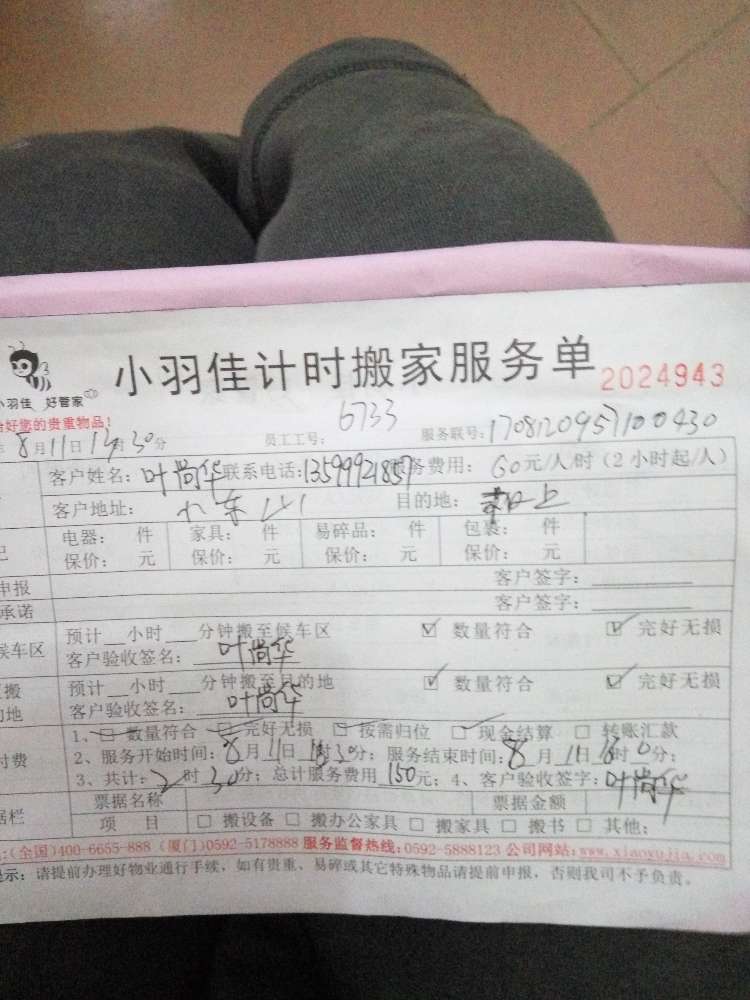 小羽佳计时搬家服务单 2024943
小羽佳 好管家
好您的贵重物品!
8月11日13时30分 员工工号: 6733 服务联号: 1708120957100430
客户姓名: 叶尚华 联系电话: 13599921857 服务费用: 60元/人/时（2小时起/人）
客户地址: 目的地:
电器: 件 家具: 件 易碎品: 件 包裹: 件
保价: 元 保价: 元 保价: 元 保价: 元
申报 客户签字:
承诺 客户签字:
候车区 预计__小时___分钟搬至候车区 ☑ 数量符合 ☑ 完好无损
客户验收签名: 叶尚华
搬 预计__小时___分钟搬至目的地 ☑ 数量符合 ☑ 完好无损
的地 客户验收签名: 叶尚华
1、☑ 数量符合 ☑ 完好无损 ☑ 按需归位 ☑ 现金结算 □ 转账汇款
付费 2、服务开始时间: 8月11日13时30分; 服务结束时间: 8月11日16时0分;
3、共计: 2时30分; 总计服务费用150元; 4、客户验收签字: 叶尚华
据栏 票据名称 票据金额
项 目 □ 搬设备 □ 搬办公家具 □ 搬家具 □ 搬书 □ 其他:
:(全国)400-6655-888 (厦门)0592-5178888 服务监督热线:0592-5888123 公司网站:www.xiaoyujia.com
提示: 请提前办理好物业通行手续，如有贵重、易碎或其它特殊物品请提前申报，否则我司不予负责。